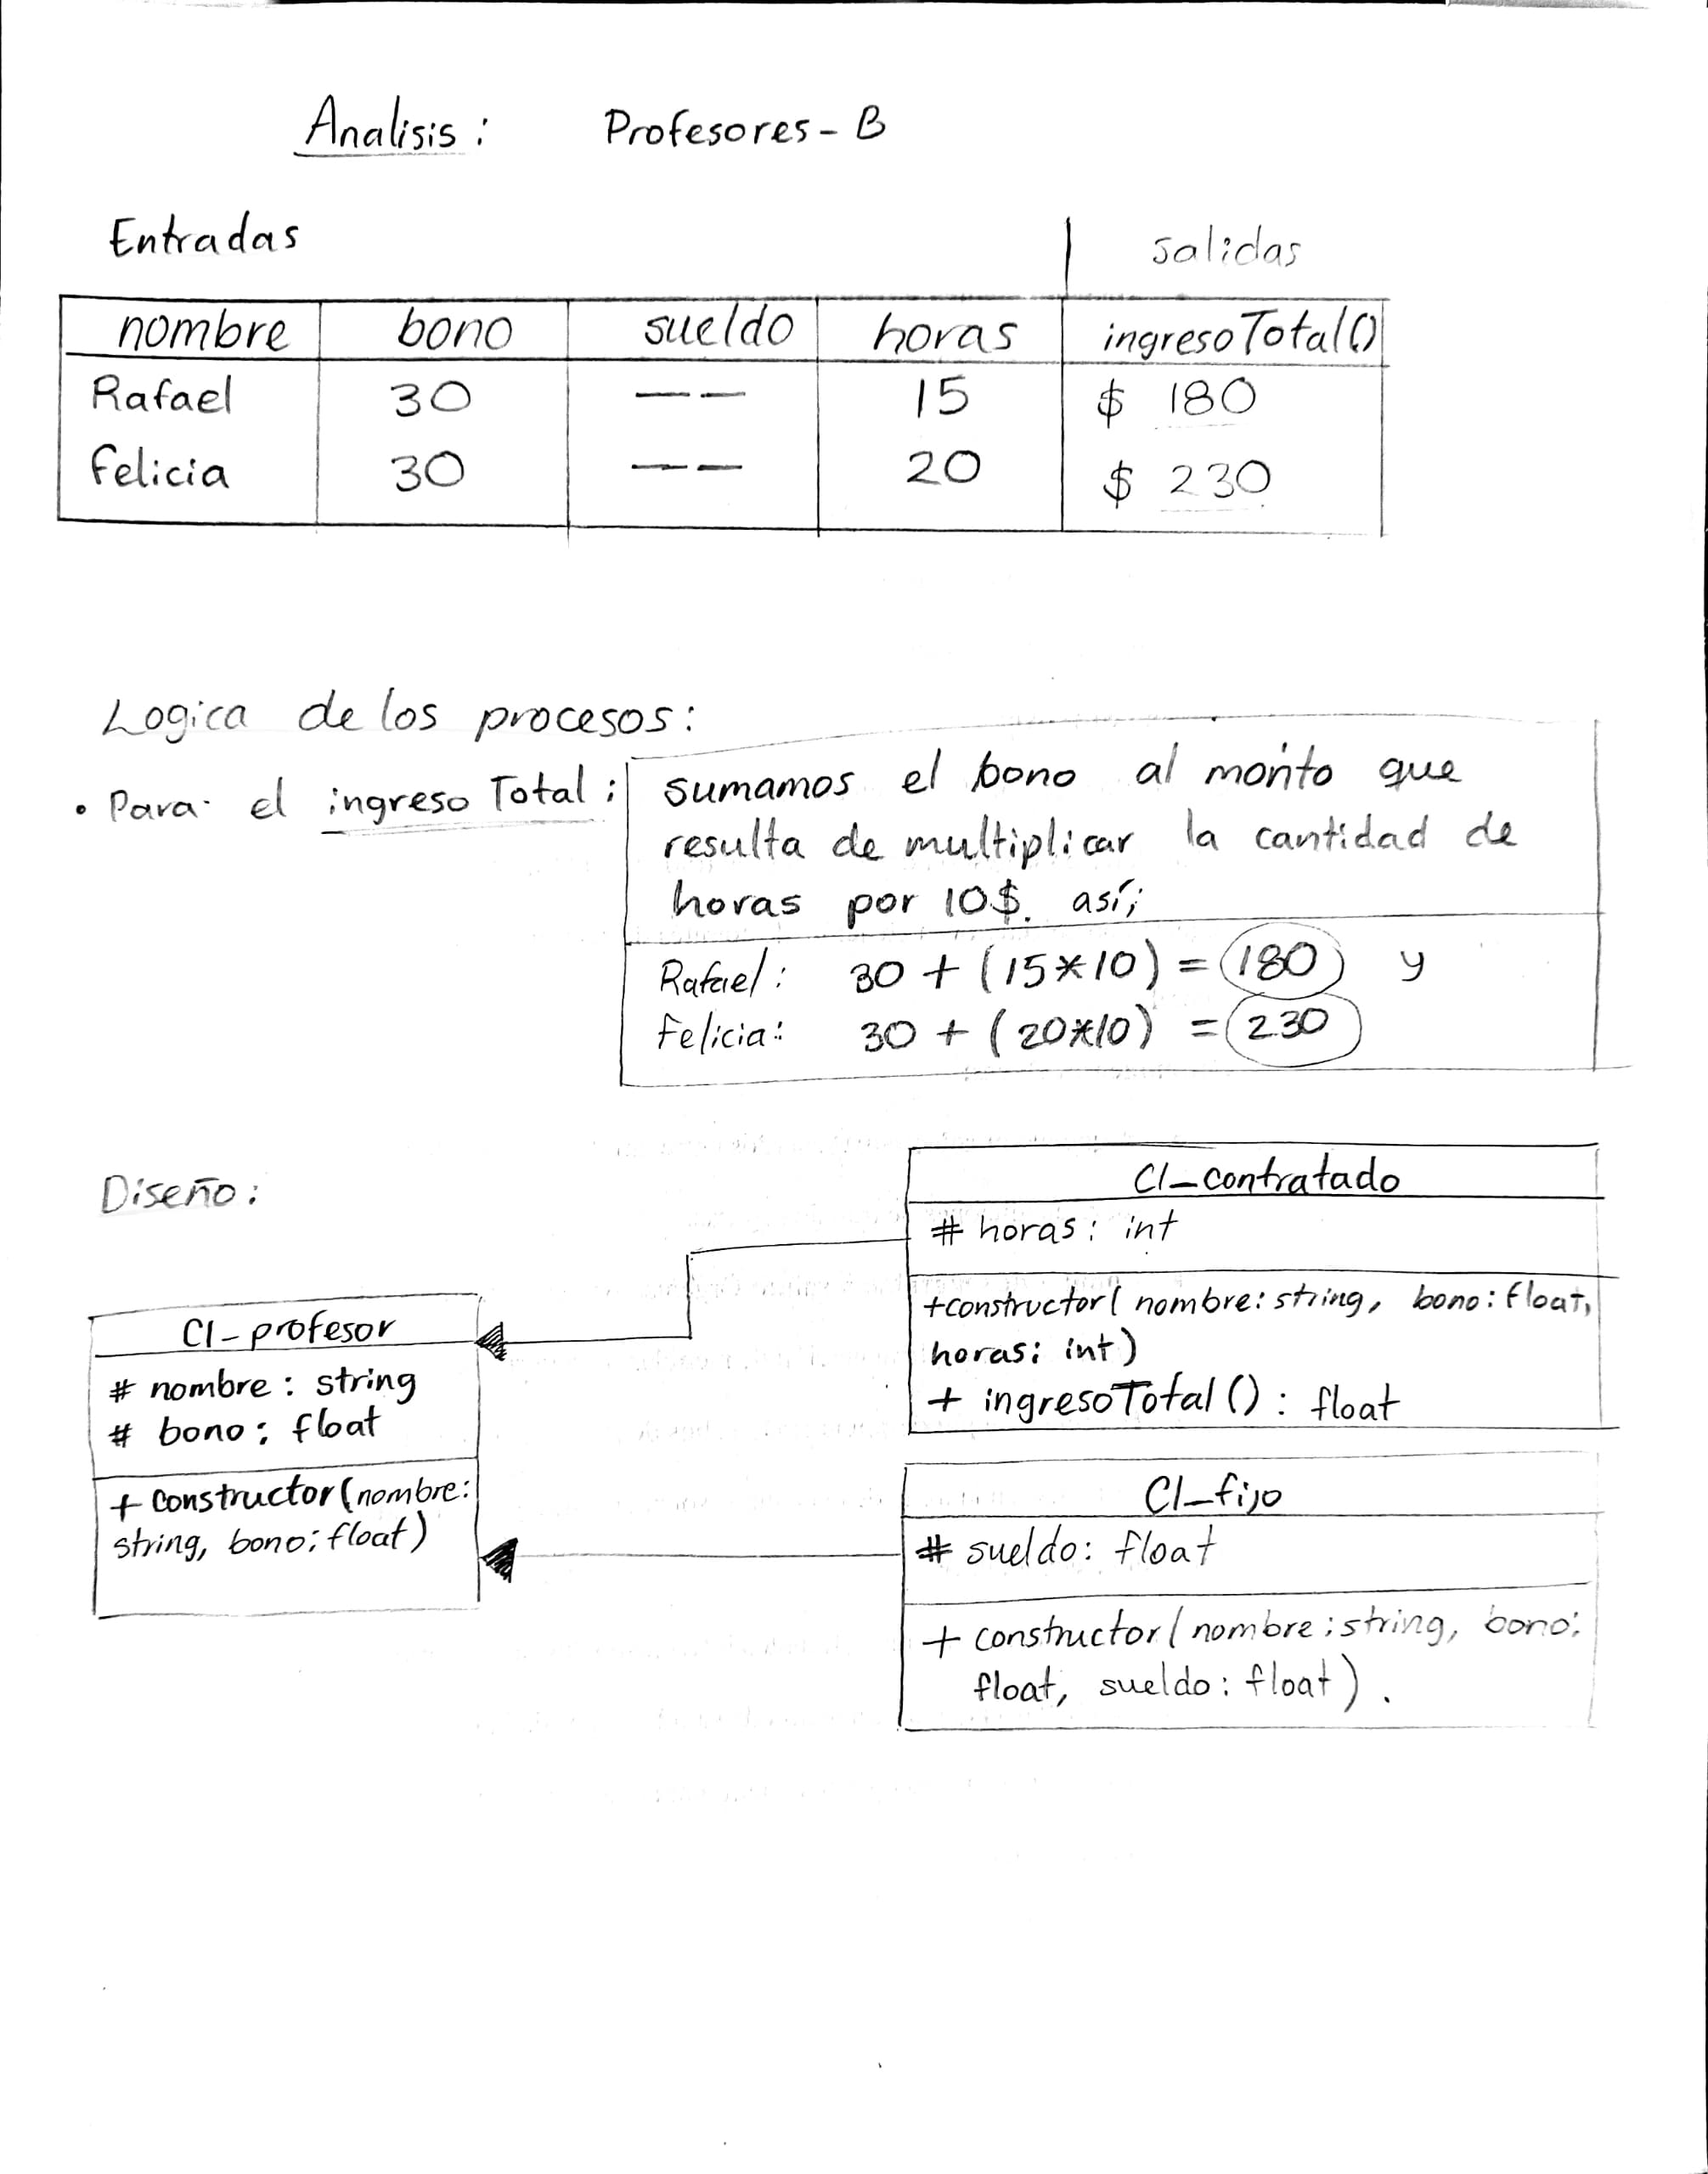 Analisis: Profesores-B
Entradas salidas
nombre bono sueldo horas ingresoTotal()
Rafael 30 —— 15 $ 180
Felicia 30 —— 20 $ 230
Logica de los procesos:
• Para el ingreso Total: sumamos el bono al monto que
resulta de multiplicar la cantidad de
horas por 10$. así;
Rafael: 30 + (15*10) = 180 y
Felicia: 30 + (20*10) = 230
Diseño:
Cl_contratado
# horas: int
+constructor( nombre: string, bono: float,
horas: int)
+ ingresoTotal(): float
Cl-profesor
# nombre: string
# bono: float
+ constructor(nombre:
string, bono: float)
Cl_fijo
# sueldo: float
+ constructor( nombre: string, bono:
float, sueldo: float).